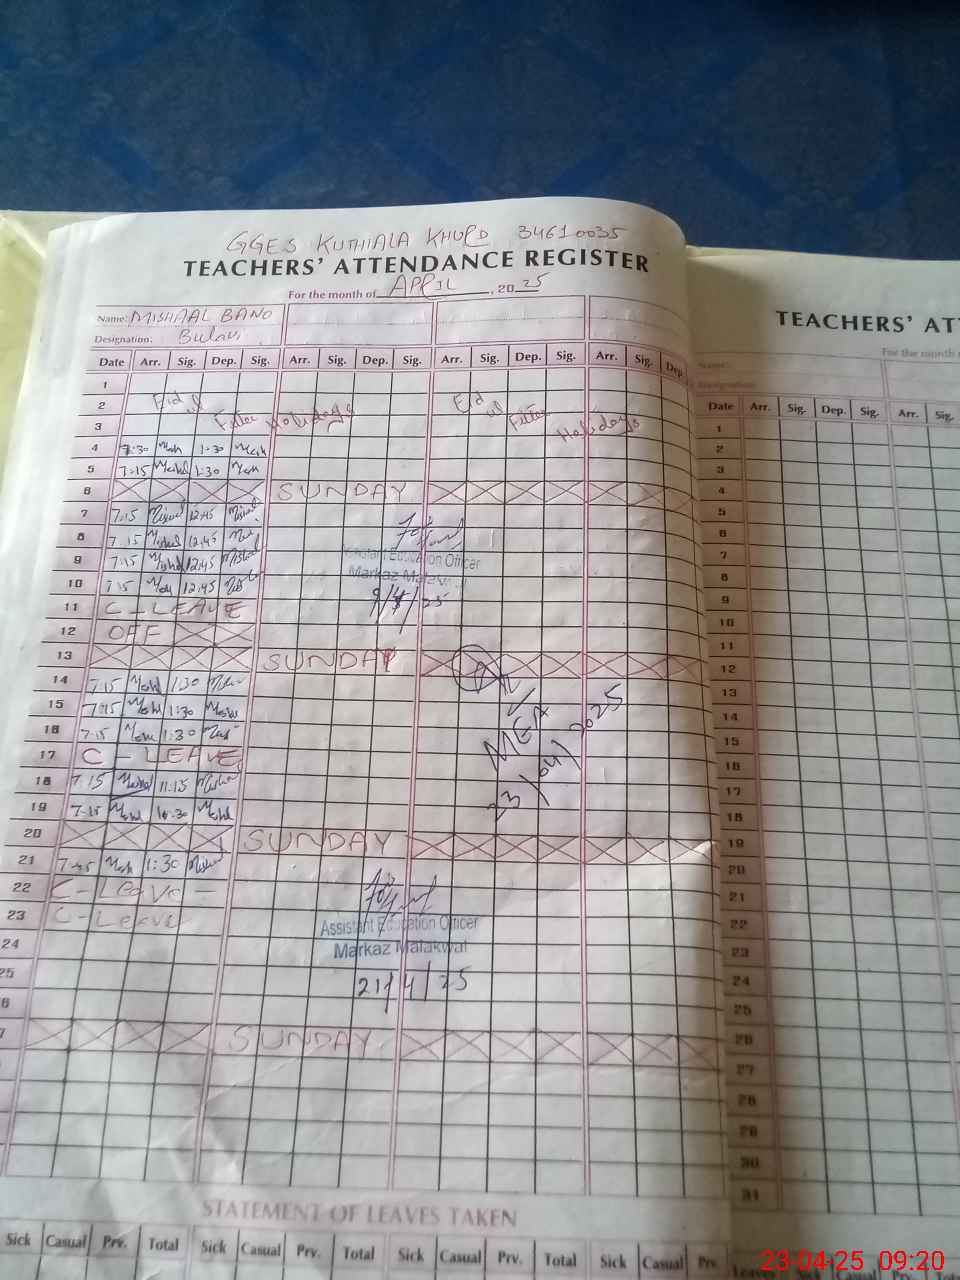 GGES KUTHIALA KHURD 34610035
TEACHERS' ATTENDANCE REGISTER
For the month of APRIL, 2025
Name: MISHAAL BANO
Designation:
Date Arr. Sig. Dep. Sig. Arr. Sig. Dep. Sig. Arr. Sig. Dep. Sig. Arr. Sig. Dep.
1
2 Eid ul Eid ul
3 Fitter Holidays Fitter Holidays
4 7:30 1:30
5 7:15 1:30
6 SUNDAY
7 7:15 12:45
8 7:15 12:45
9 7:15 12:45
10 7:15 12:45
Assistant Education Officer
Markaz Malakwal
11 C-LEAVE
12 OFF
13 SUNDAY
14 7:15 1:30
15 7:15 1:30
16 7:15 1:30
MEA
23/04/2025
17 C-LEAVE
18 7:15 11:15
19 7:15
20 SUNDAY
21 1:30
22 C-Leave
23 C-Leave
Assistant Education Officer
Markaz Malakwal
21/4/25
24
25
6
7 SUNDAY
STATEMENT OF LEAVES TAKEN
Sick Casual Prv. Total Sick Casual Prv. Total Sick Casual Prv. Total Sick Casual Prv
TEACHERS' AT
For the month
Name:
Designation:
Date Arr. Sig. Dep. Sig. Arr. Sig.
1
2
3
4
5
6
7
8
9
10
11
12
13
14
15
16
17
18
19
20
21
22
23
24
25
26
27
28
29
30
31
23-04-25 09:20